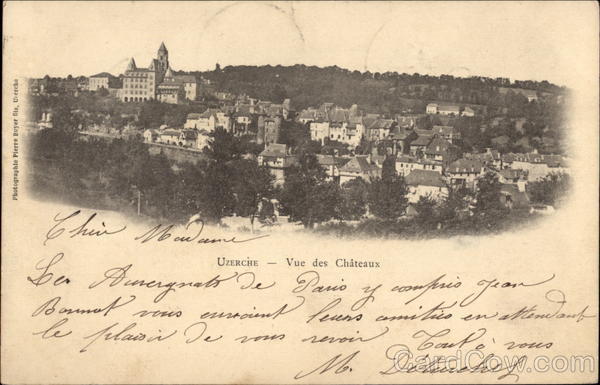 Photographie Pierre Boyer fils, Uzerche
UZERCHE — Vue des Châteaux
Chère Madame
Les Auvergnats de Paris y compris Jean
Bonnot vous envoient leurs amitiés en attendant
le plaisir de vous revoir Tout à vous
M.
CardCow.com